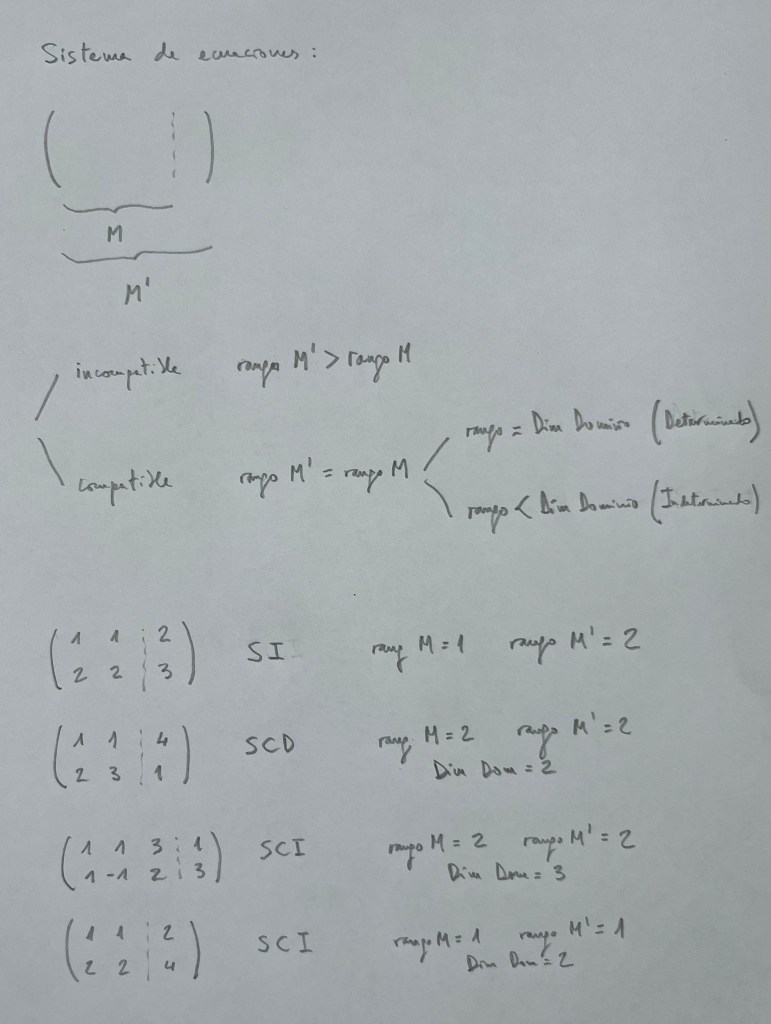 Sistema de ecuaciones:
M
M'
incompatible rango M' > rango M
rango = Dim Dominio (Determinado)
compatible rango M' = rango M
rango < Dim Dominio (Indeterminado)
1 1 2
2 2 3
SI rang M = 1 rango M' = 2
1 1 4
2 3 1
SCD rang M = 2 rango M' = 2
Dim Dom = 2
1 1 3 1
1 -1 2 3
SCI rango M = 2 rango M' = 2
Dim Dom = 3
1 1 2
2 2 4
SCI rango M = 1 rango M' = 1
Dim Dom = 2